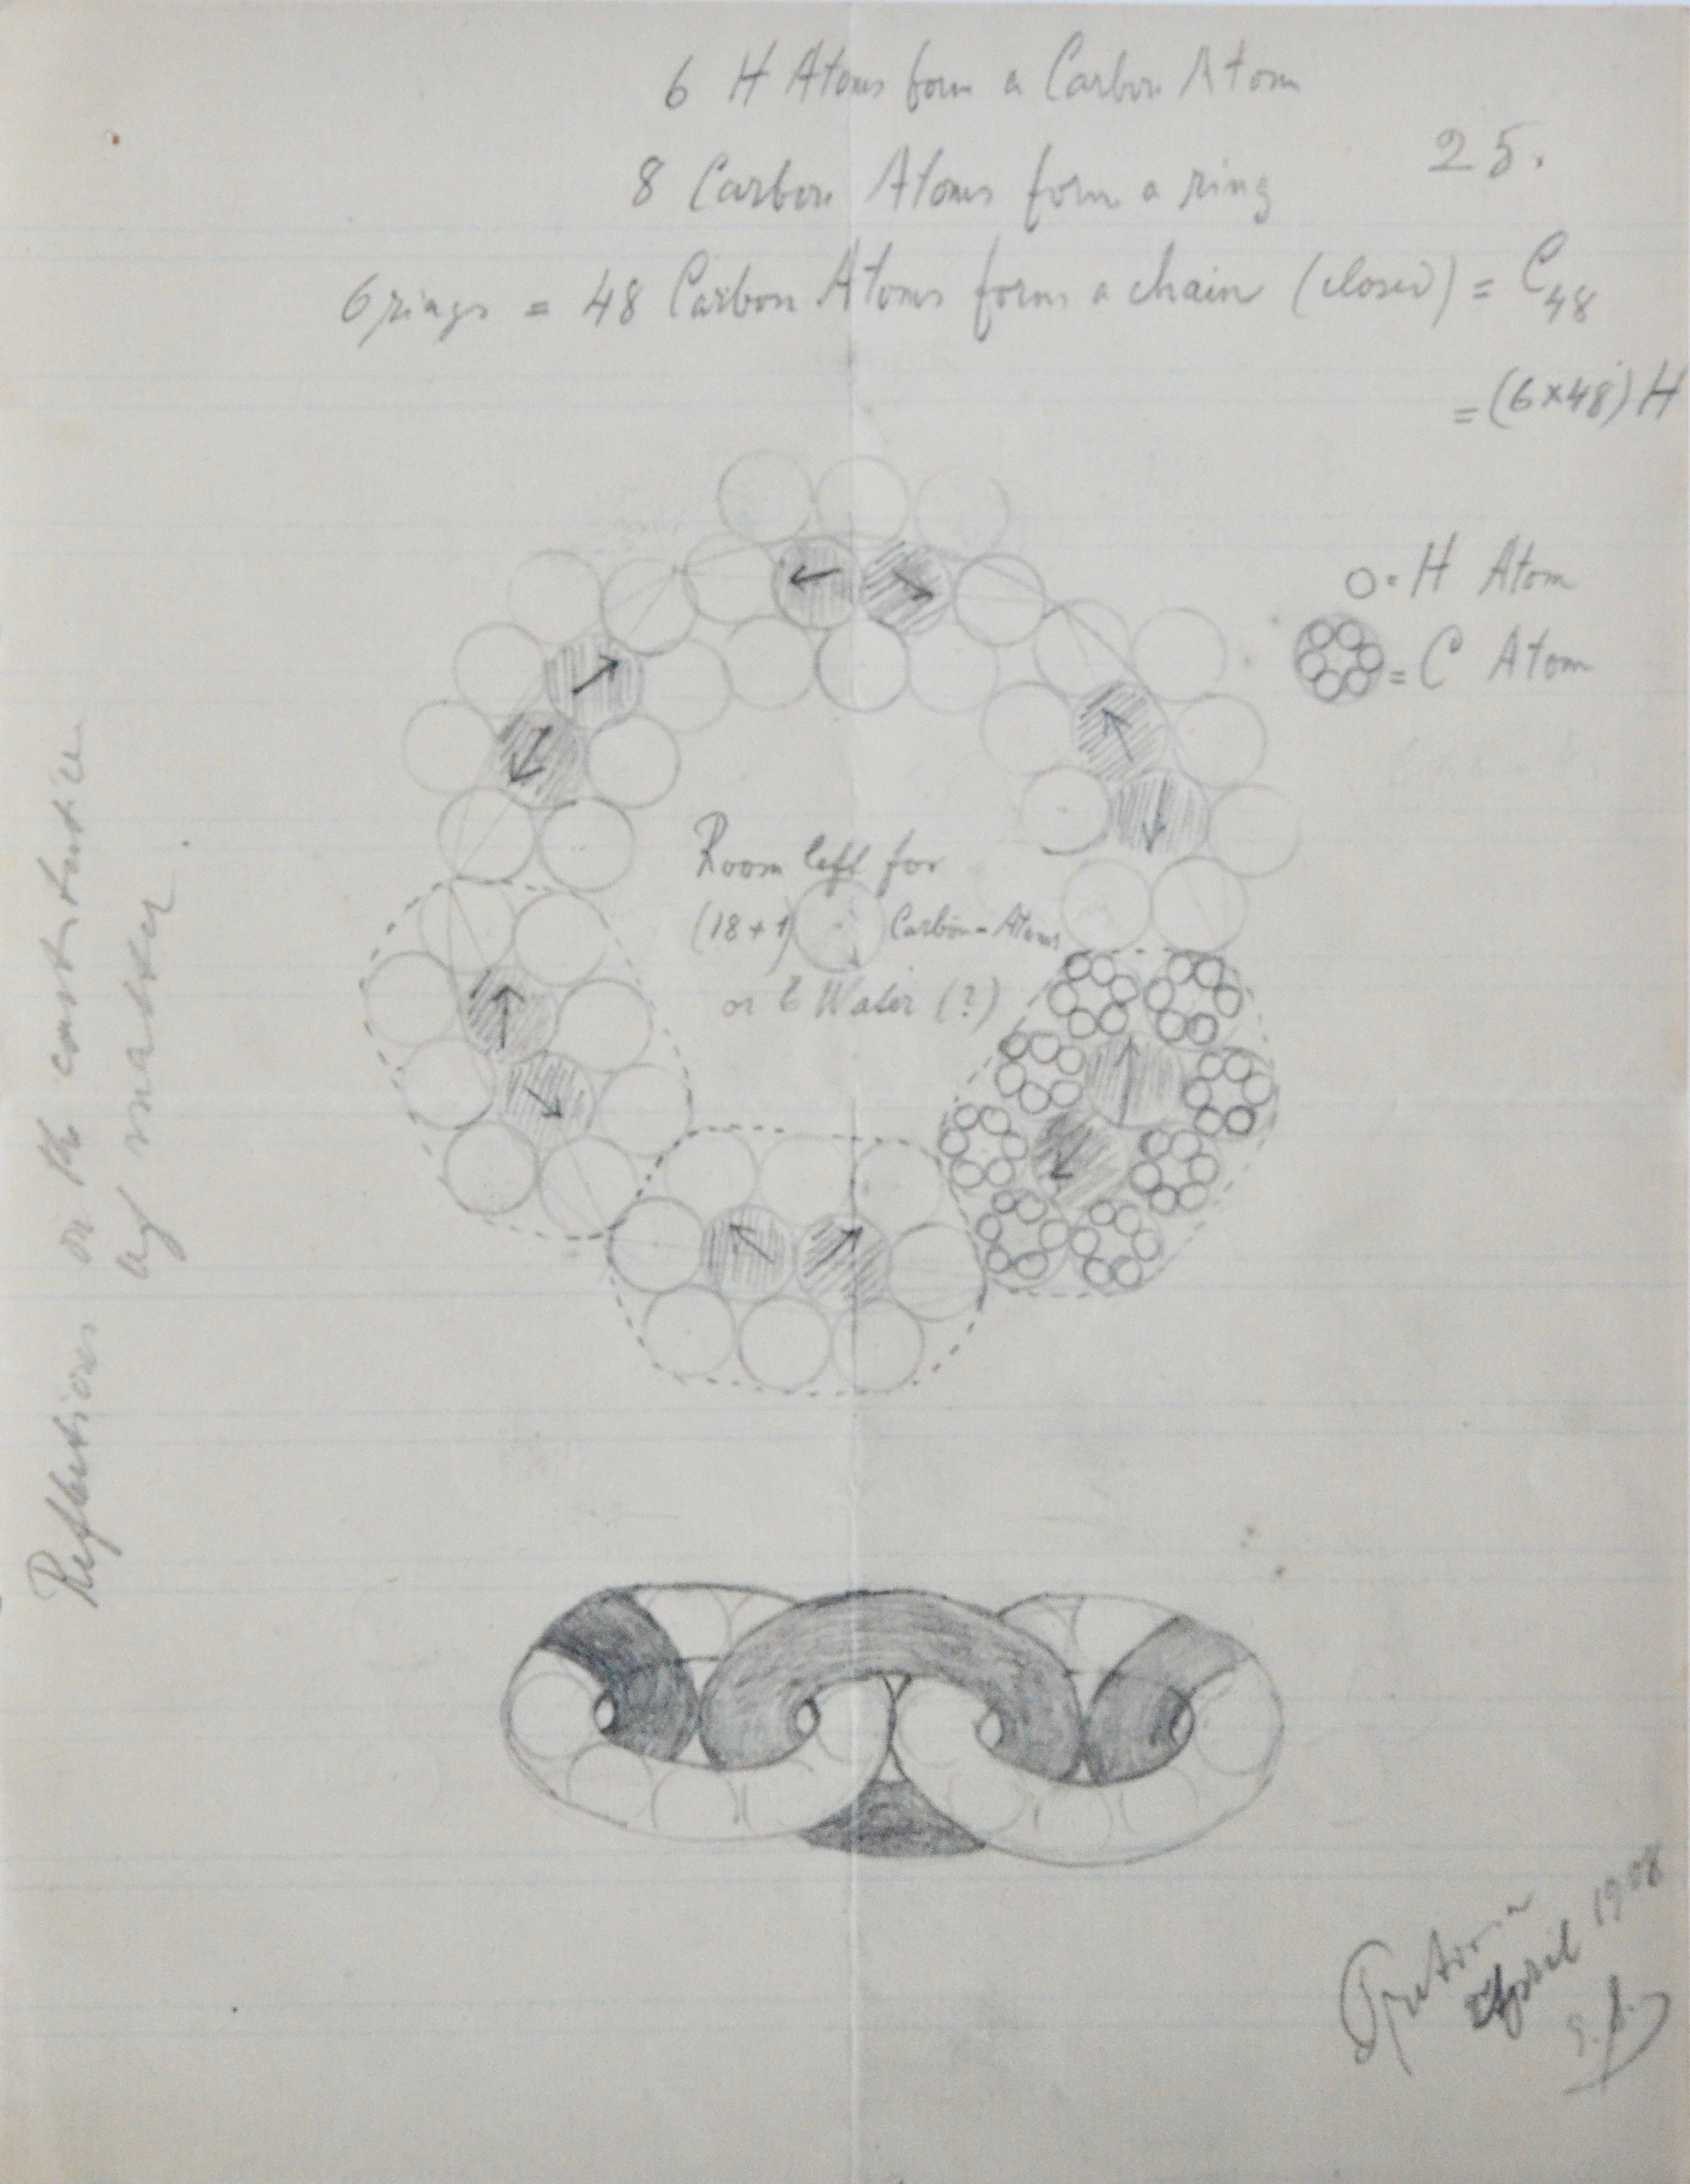 6 H Atoms form a Carbon Atom
25.
8 Carbon Atoms form a ring
6 rings = 48 Carbon Atoms forms a chain (closed) = C48
= (6×48) H
O = H Atom
= C Atom
Room left for
(18+1) Carbon-Atoms
or 6 Water (?)
Reflections on the constitution
of matter.
Pretoria
April 1908